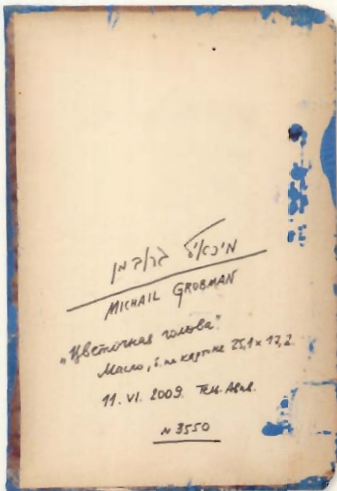 מיכאיל גרובמן
MICHAIL GROBMAN
"Цветочная голова".
Масло, б. на картоне 25,1 × 17,2.
11.VI.2009. Тель-Авив.
№3550